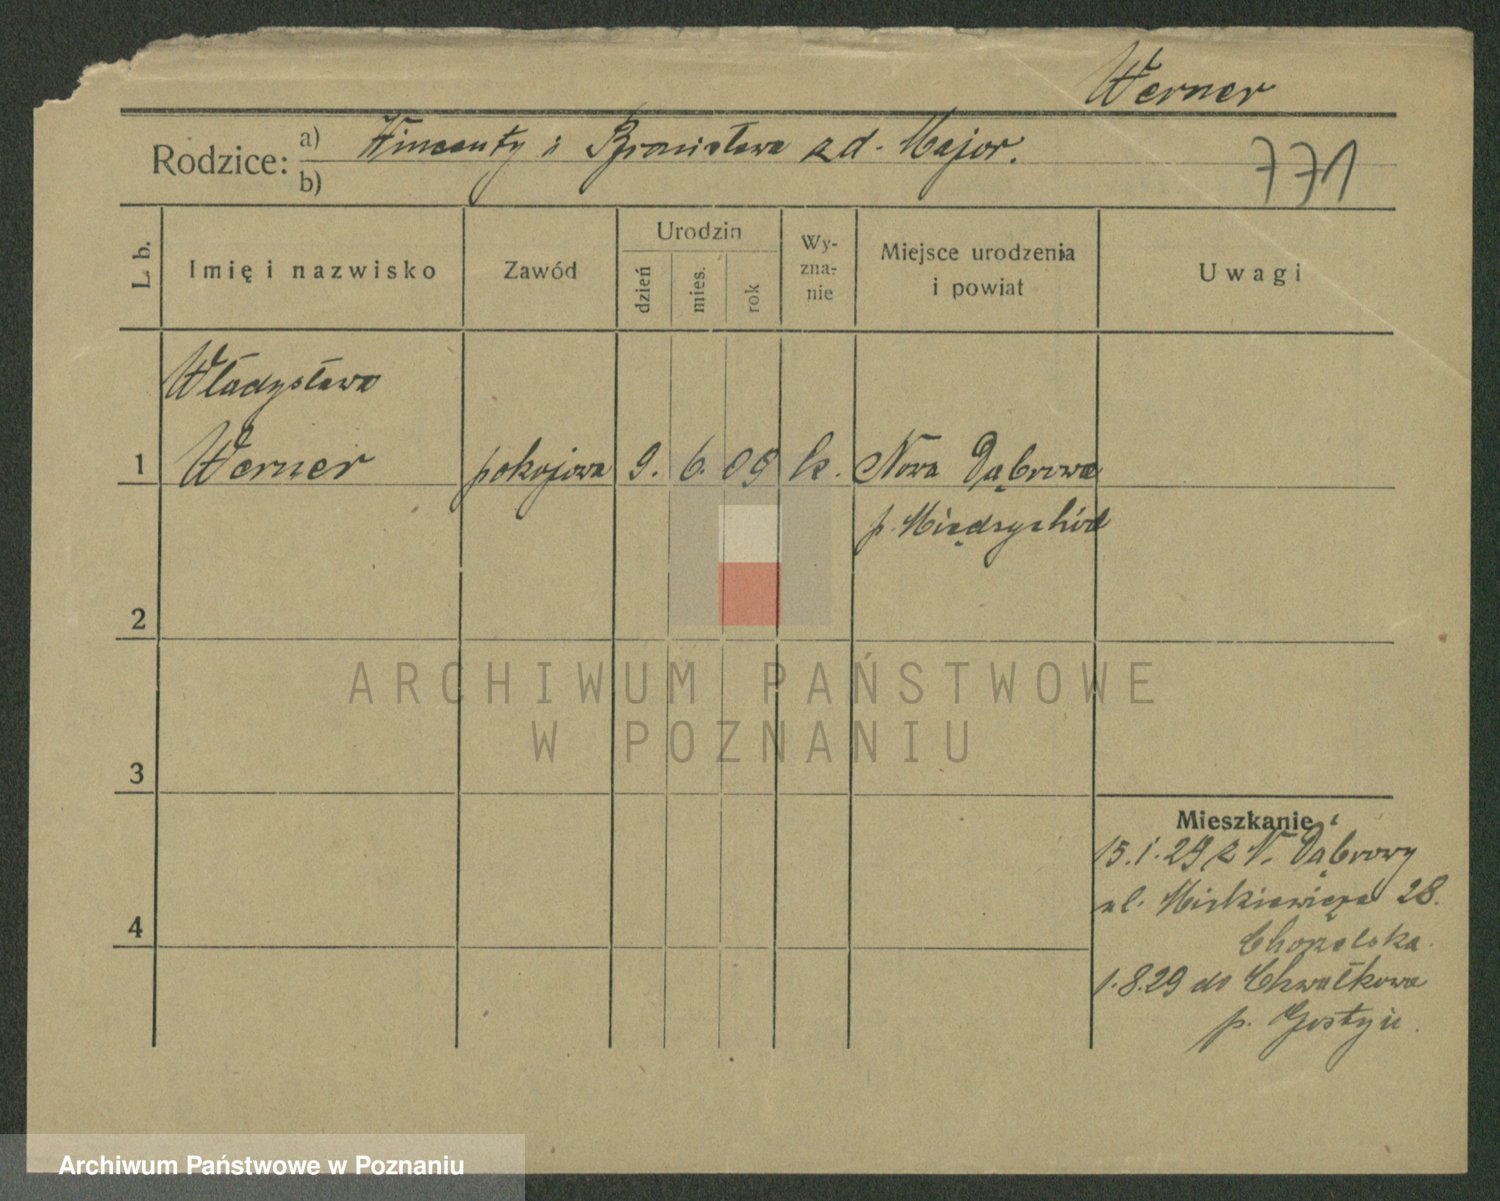 Werner
Rodzice: a) Wincenty i Bronisława zd. Major.
b)
771
L. b.
Imię i nazwisko
Zawód
Urodzin
dzień
mies.
rok
Wy-
zna-
nie
Miejsce urodzenia
i powiat
Uwagi
Władysława
1 Werner pokojowa 9. 6. 09 k. Nowa Dąbrowa
p. Międzychód
2
ARCHIWUM PAŃSTWOWE
W POZNANIU
3
Mieszkanie
15.1.29 z N. Dąbrowy
ul. Mickiewicza 28.
4
1.8.29 do Chwałkowa
p. Gostyń.
Archiwum Państwowe w Poznaniu